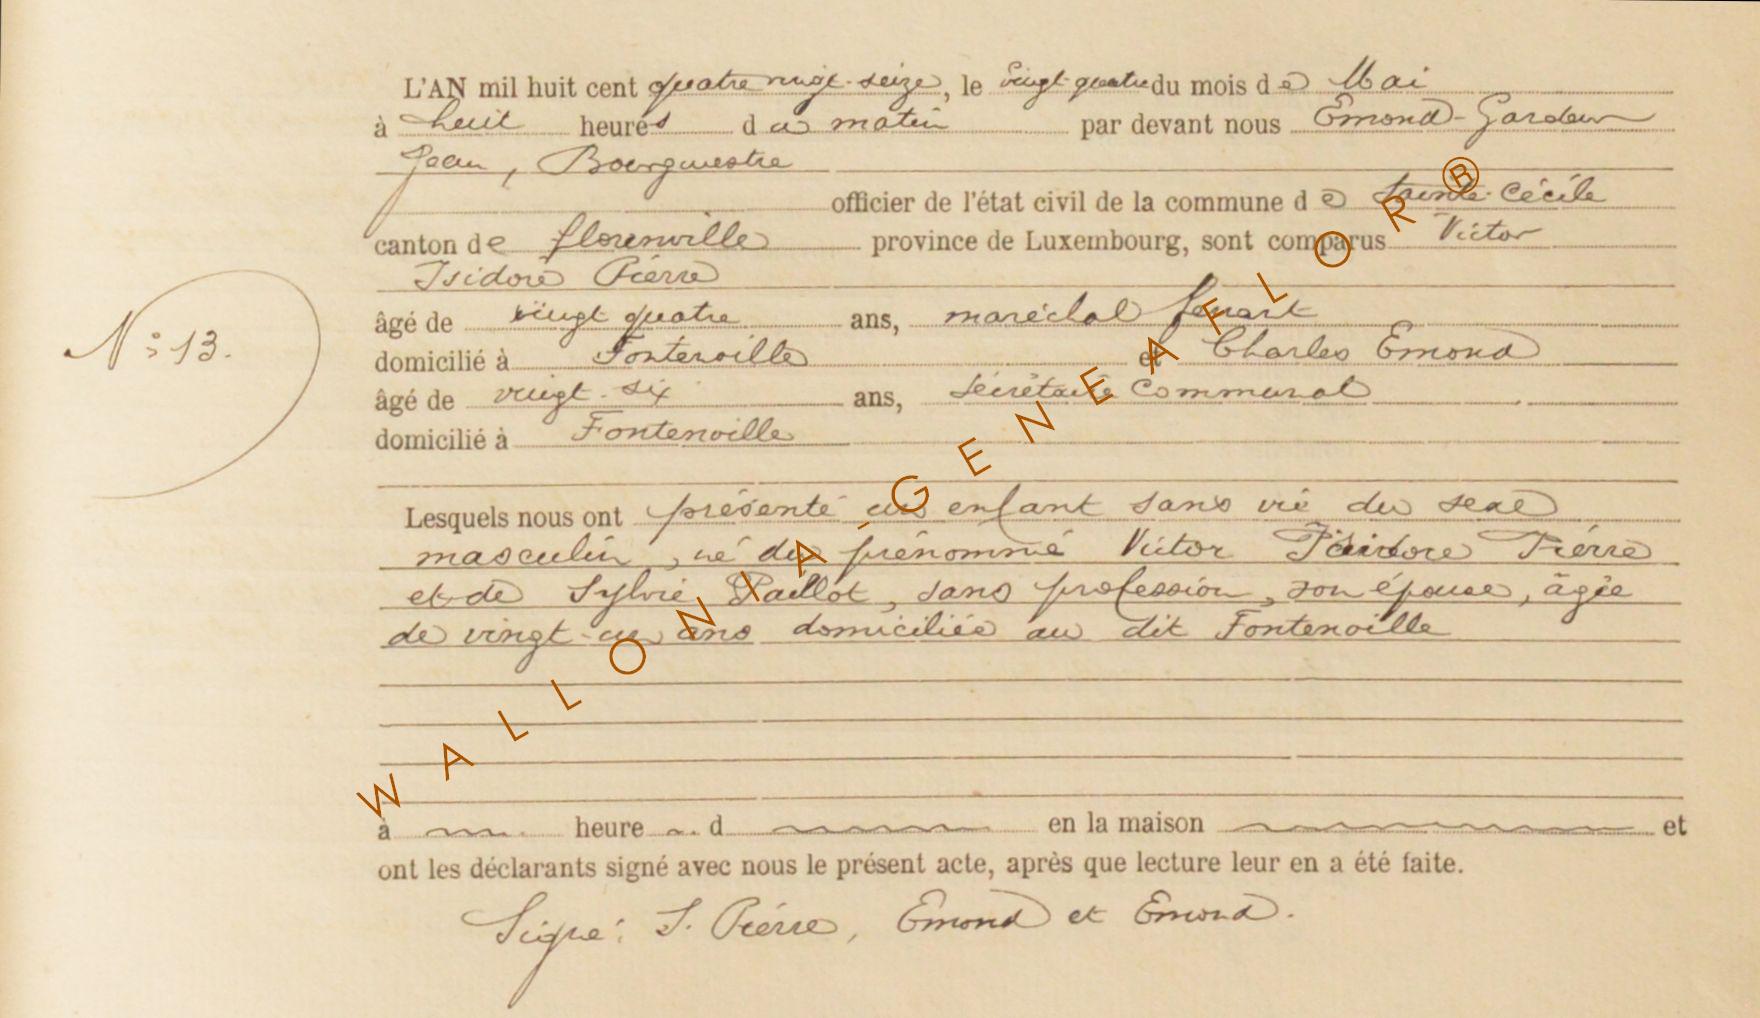 L'AN mil huit cent quatre vingt-seize, le vingt-quatre du mois de Mai
à huit heures du matin par devant nous Emond-Gardeur
Jean, Bourgmestre
officier de l'état civil de la commune de Sainte-Cécile
canton de florenville province de Luxembourg, sont comparus Victor
Isidore Piérre
N° 13.
âgé de vingt quatre ans, maréchal ferrant
domicilié à Fontenoille et Charles Emond
âgé de vingt-six ans, Sécrétaire Communal
domicilié à Fontenoille
Lesquels nous ont présenté un enfant sans vie du sexe
masculin, né du prénommé Victor Isidore Piérre
et de Sylvie Paillot, sans profession, son épouse, âgée
de vingt-un ans domiciliée au dit Fontenoille
à heure d en la maison et
ont les déclarants signé avec nous le présent acte, après que lecture leur en a été faite.
Signé: I. Piérre, Emond et Emond.
WALLONIA-GENEAFLOR®